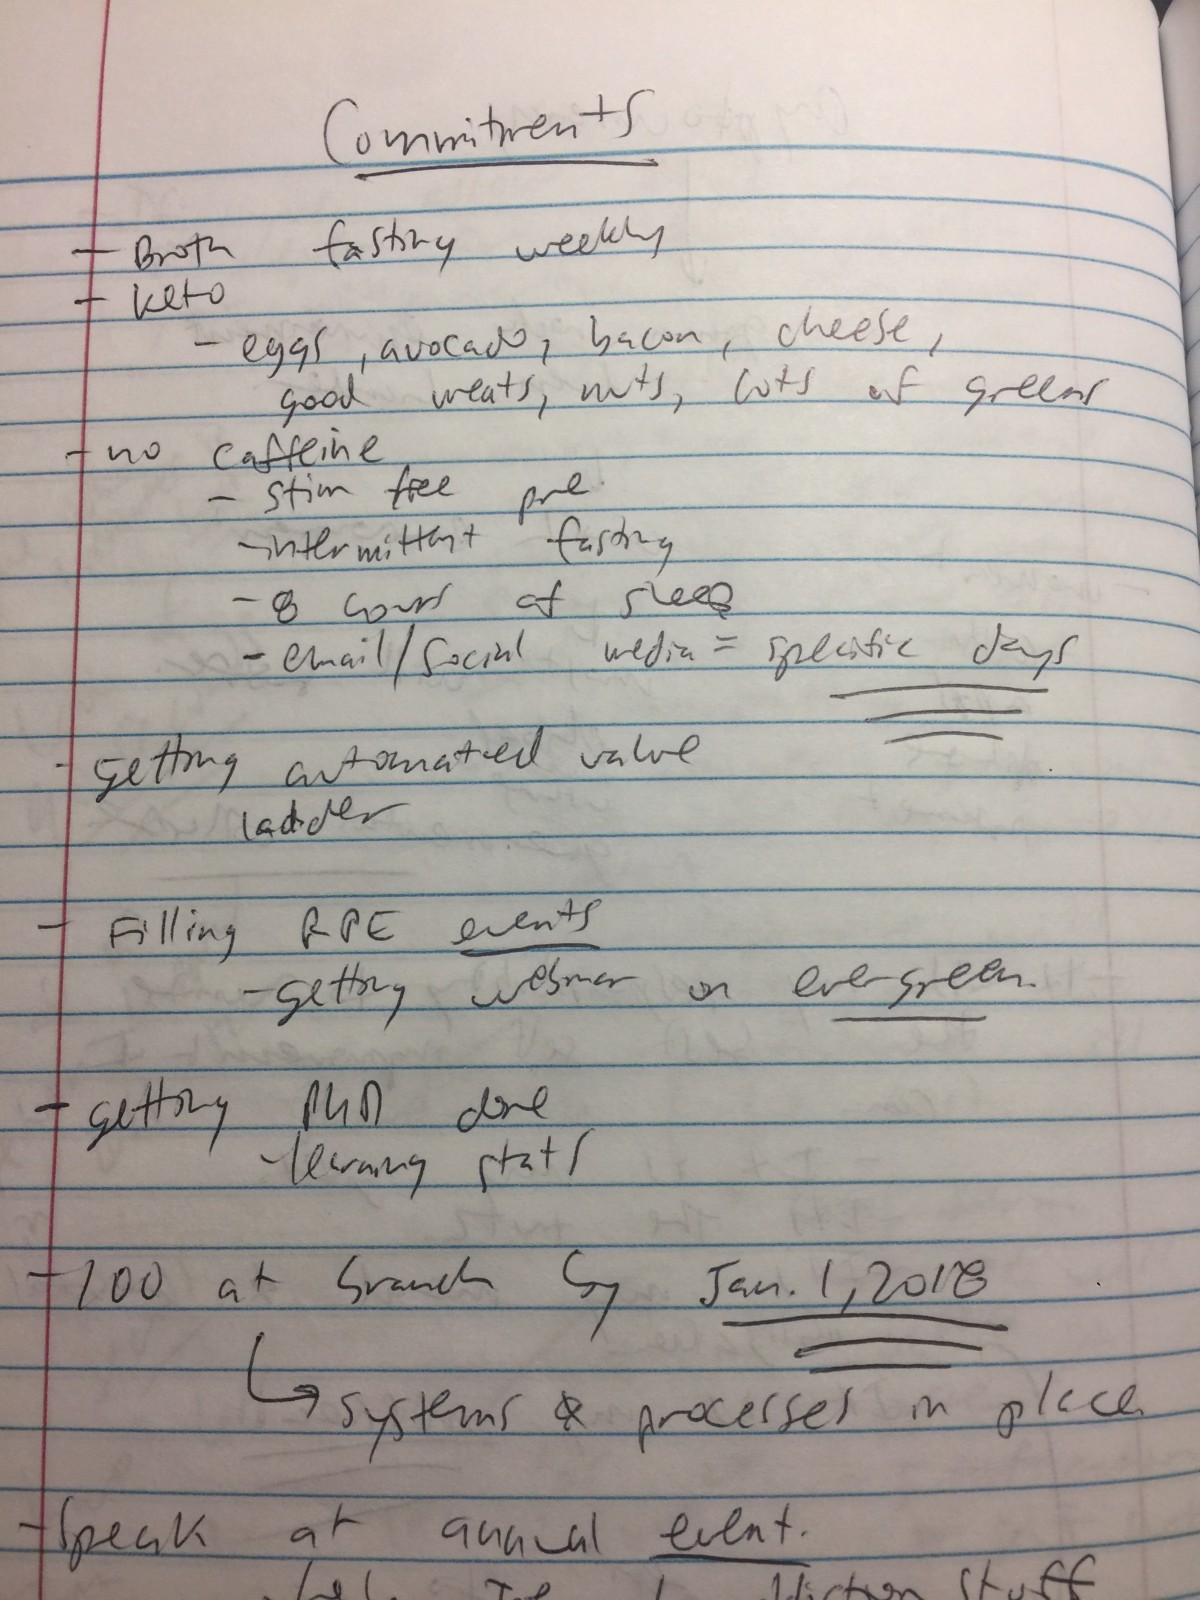 Commitments
- Broth fasting weekly
- Keto
- eggs, avocado, bacon, cheese,
good meats, nuts, lots of greens
- no caffeine
- stim free pre
- intermittent fasting
- 8 hours of sleep
- email/social media = specific days
- Getting automated value
ladder
- Filling RPE events
- Getting webinar on evergreen.
- getting PHD done
- learning stats
- 100 at branch by Jan. 1, 2018
↳ systems & processes in place
- Speak at annual event.
stuff